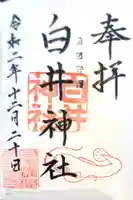 奉拝
白井神社
令和二年十二月二十日